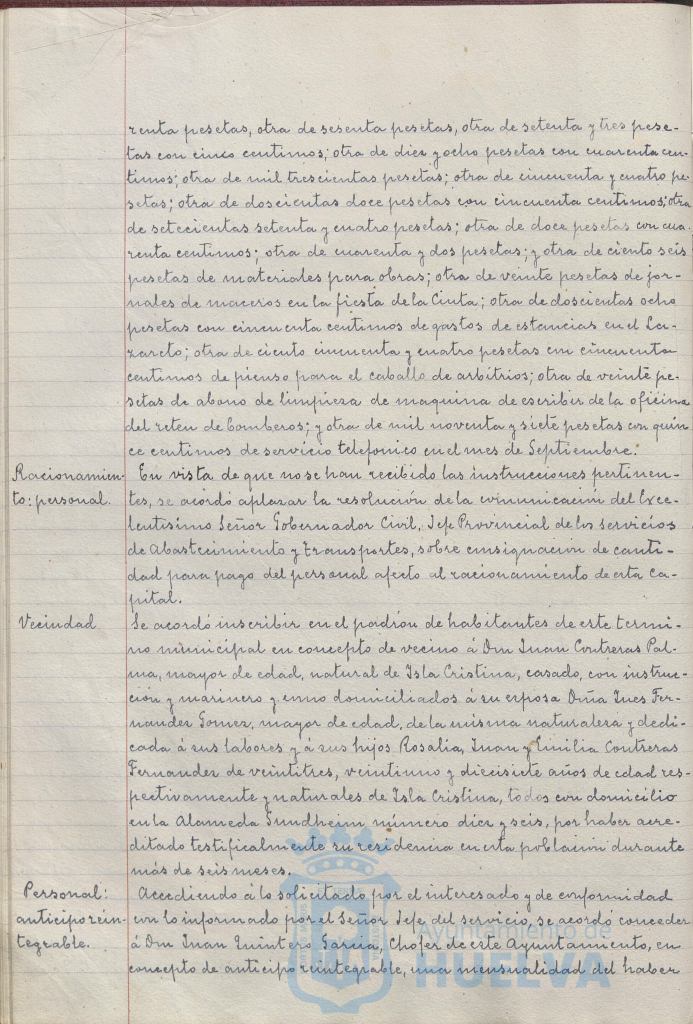 renta pesetas, otra de sesenta pesetas, otra de setenta y tres pese-
tas con cinco centimos; otra de diez y ocho pesetas con cuarenta cen-
timos; otra de mil trescientas pesetas; otra de cincuenta y cuatro pe-
setas; otra de doscientas doce pesetas con cincuenta centimos; otra
de setecientas setenta y cuatro pesetas; otra de doce pesetas con cua-
renta centimos; otra de cuarenta y dos pesetas; y otra de ciento seis
pesetas de materiales para obras; otra de veinte pesetas de jor-
nales de maceros en la fiesta de la Cinta; otra de doscientas ocho
pesetas con cincuenta centimos de gastos de estancias en el La-
zareto; otra de ciento cincuenta y cuatro pesetas con cincuenta
centimos de pienso para el caballo de arbitrios; otra de veinte pe-
setas de abono de limpieza de maquina de escribir de la oficina
del reten de bomberos; y otra de mil noventa y siete pesetas con quin-
ce centimos de servicio telefonico en el mes de Septiembre.
Racionamien-
to: personal.
En vista de que no se han recibido las instrucciones pertinen-
tes, se acordó aplazar la resolución de la comunicación del Exce-
lentisimo Señor Gobernador Civil, Jefe Provincial de los servicios
de Abastecimiento y transportes, sobre consignación de canti-
dad para pago del personal afecto al racionamiento de esta ca-
pital.
Vecindad
Se acordó inscribir en el padrón de habitantes de este termi-
no municipal en concepto de vecino á Don Juan Contreras Pal-
ma, mayor de edad, natural de Isla Cristina, casado, con instruc-
ción y marinero y como domiciliados á su esposa Doña Ines Fer-
nandez Gomez, mayor de edad, de la misma naturaleza y dedi-
cada á sus labores y á sus hijos Rosalia, Juan y Emilia Contreras
Fernandez de veintitres, veintiuno y diecisiete años de edad res-
pectivamente y naturales de Isla Cristina, todos con domicilio
en la Alameda Sundheim número diez y seis, por haber acre-
ditado testificalmente su residencia en esta población durante
más de seis meses.
Personal:
anticipo rein-
tegrable.
Accediendo á lo solicitado por el interesado y de conformidad
con lo informado por el Señor Jefe del servicio, se acordó conceder
á Don Juan Quintero Garcia, Chofer de este Ayuntamiento, en
concepto de anticipo reintegrable, una mensualidad del haber
Ayuntamiento de
HUELVA